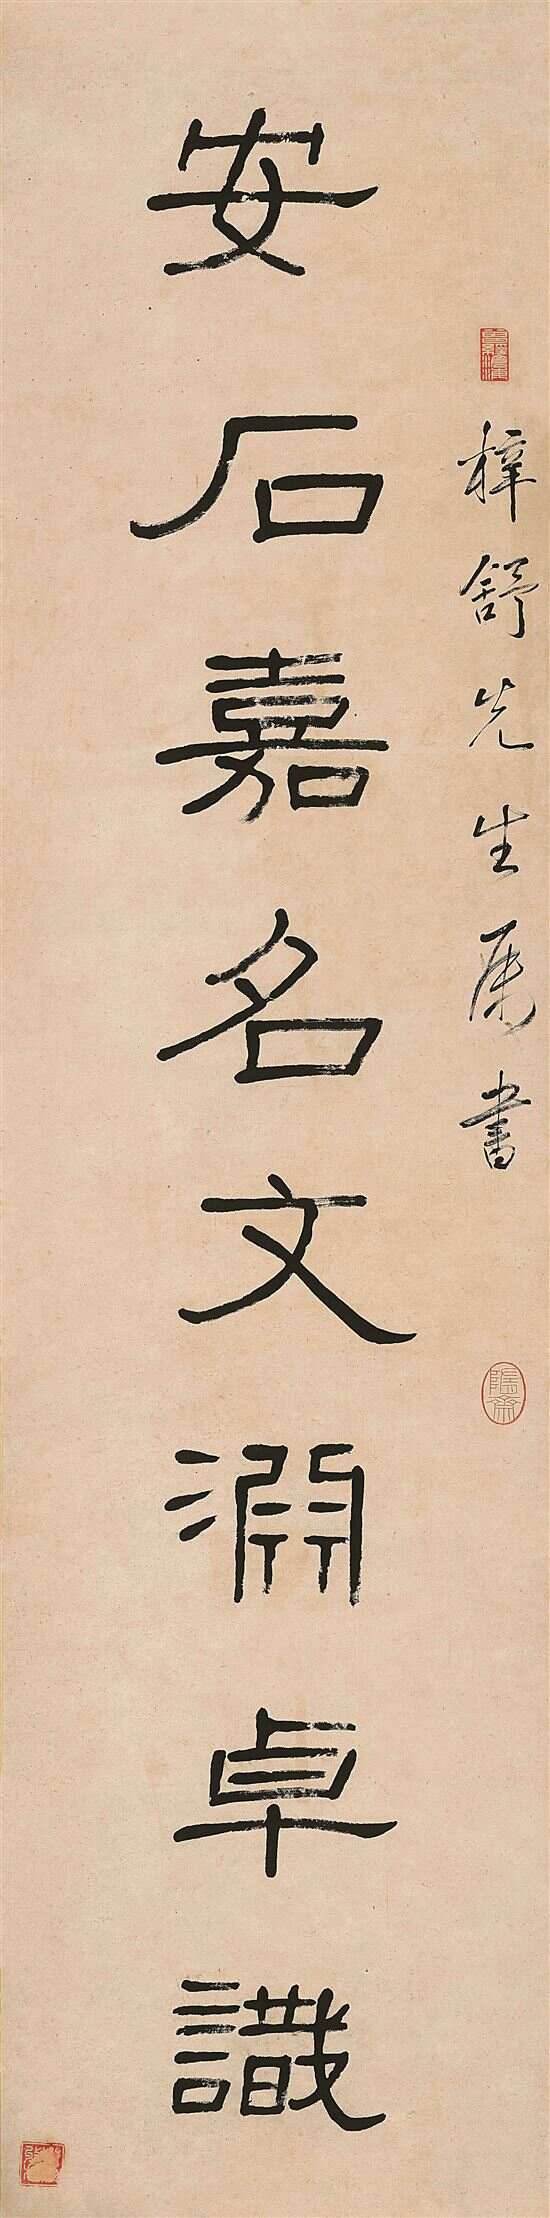 梓舒先生属書
安石嘉名文淵卓識
隱齋